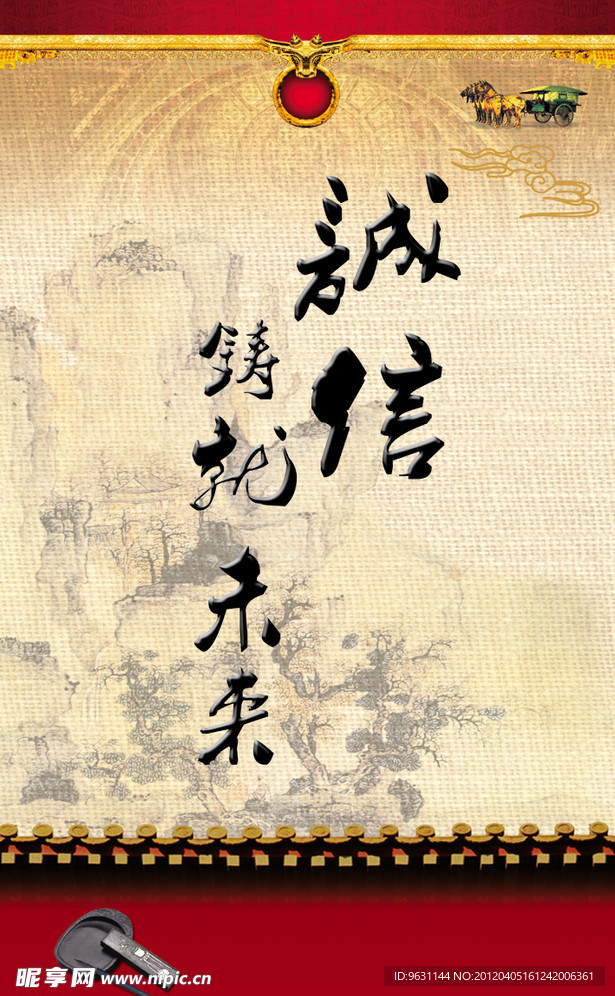 誠信
铸就未来
昵享网 www.nipic.cn
ID:9631144 NO:20120405161242006361